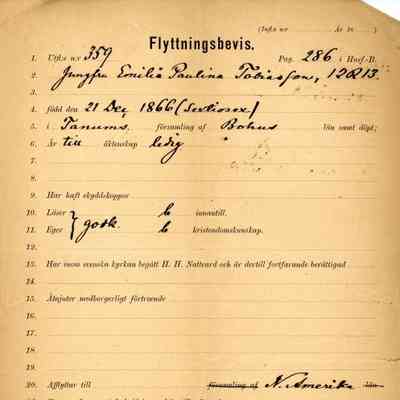 (Ink:s nr År 18 )
Flyttningsbevis.
1. Utfl:s n:r 359 Pag. 286 i Husf.-B.
2. Jungfru Emilia Paulina Tobiasson, 12813
3.
4. född den 21 Dec 1866 (Sextiosex)
5. i Tanums församling af Bohus län samt döpt;
6. Är till äktenskap ledig
7.
8.
9. Har haft skyddskoppor
10. Läser b innantill.
11. Eger godk. b kristendomskunskap.
12.
13. Har inom svenska kyrkan begått H. H. Nattvard och är dertill fortfarande berättigad
14.
15. Åtnjuter medborgerligt förtroende
16.
17.
18.
19.
20. Afflyttar till församling af N. Amerika län